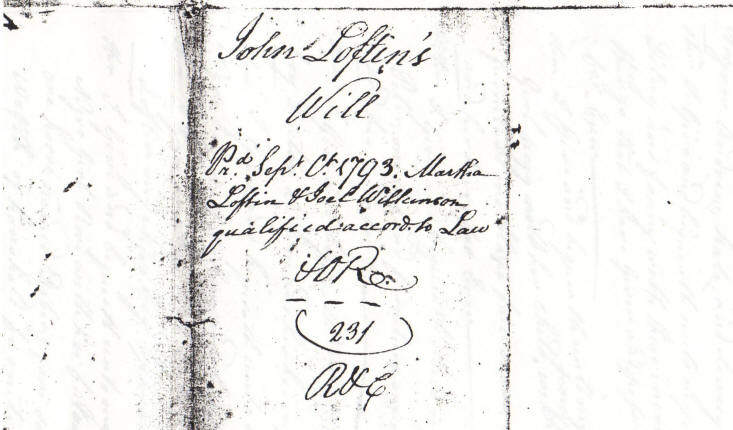 John Loftin's
Will
Pr.d Sept. Ct. 1793. Martha
Loftin & Joel Wilkinson
qualified accord. to Law
&OR
231
R&E